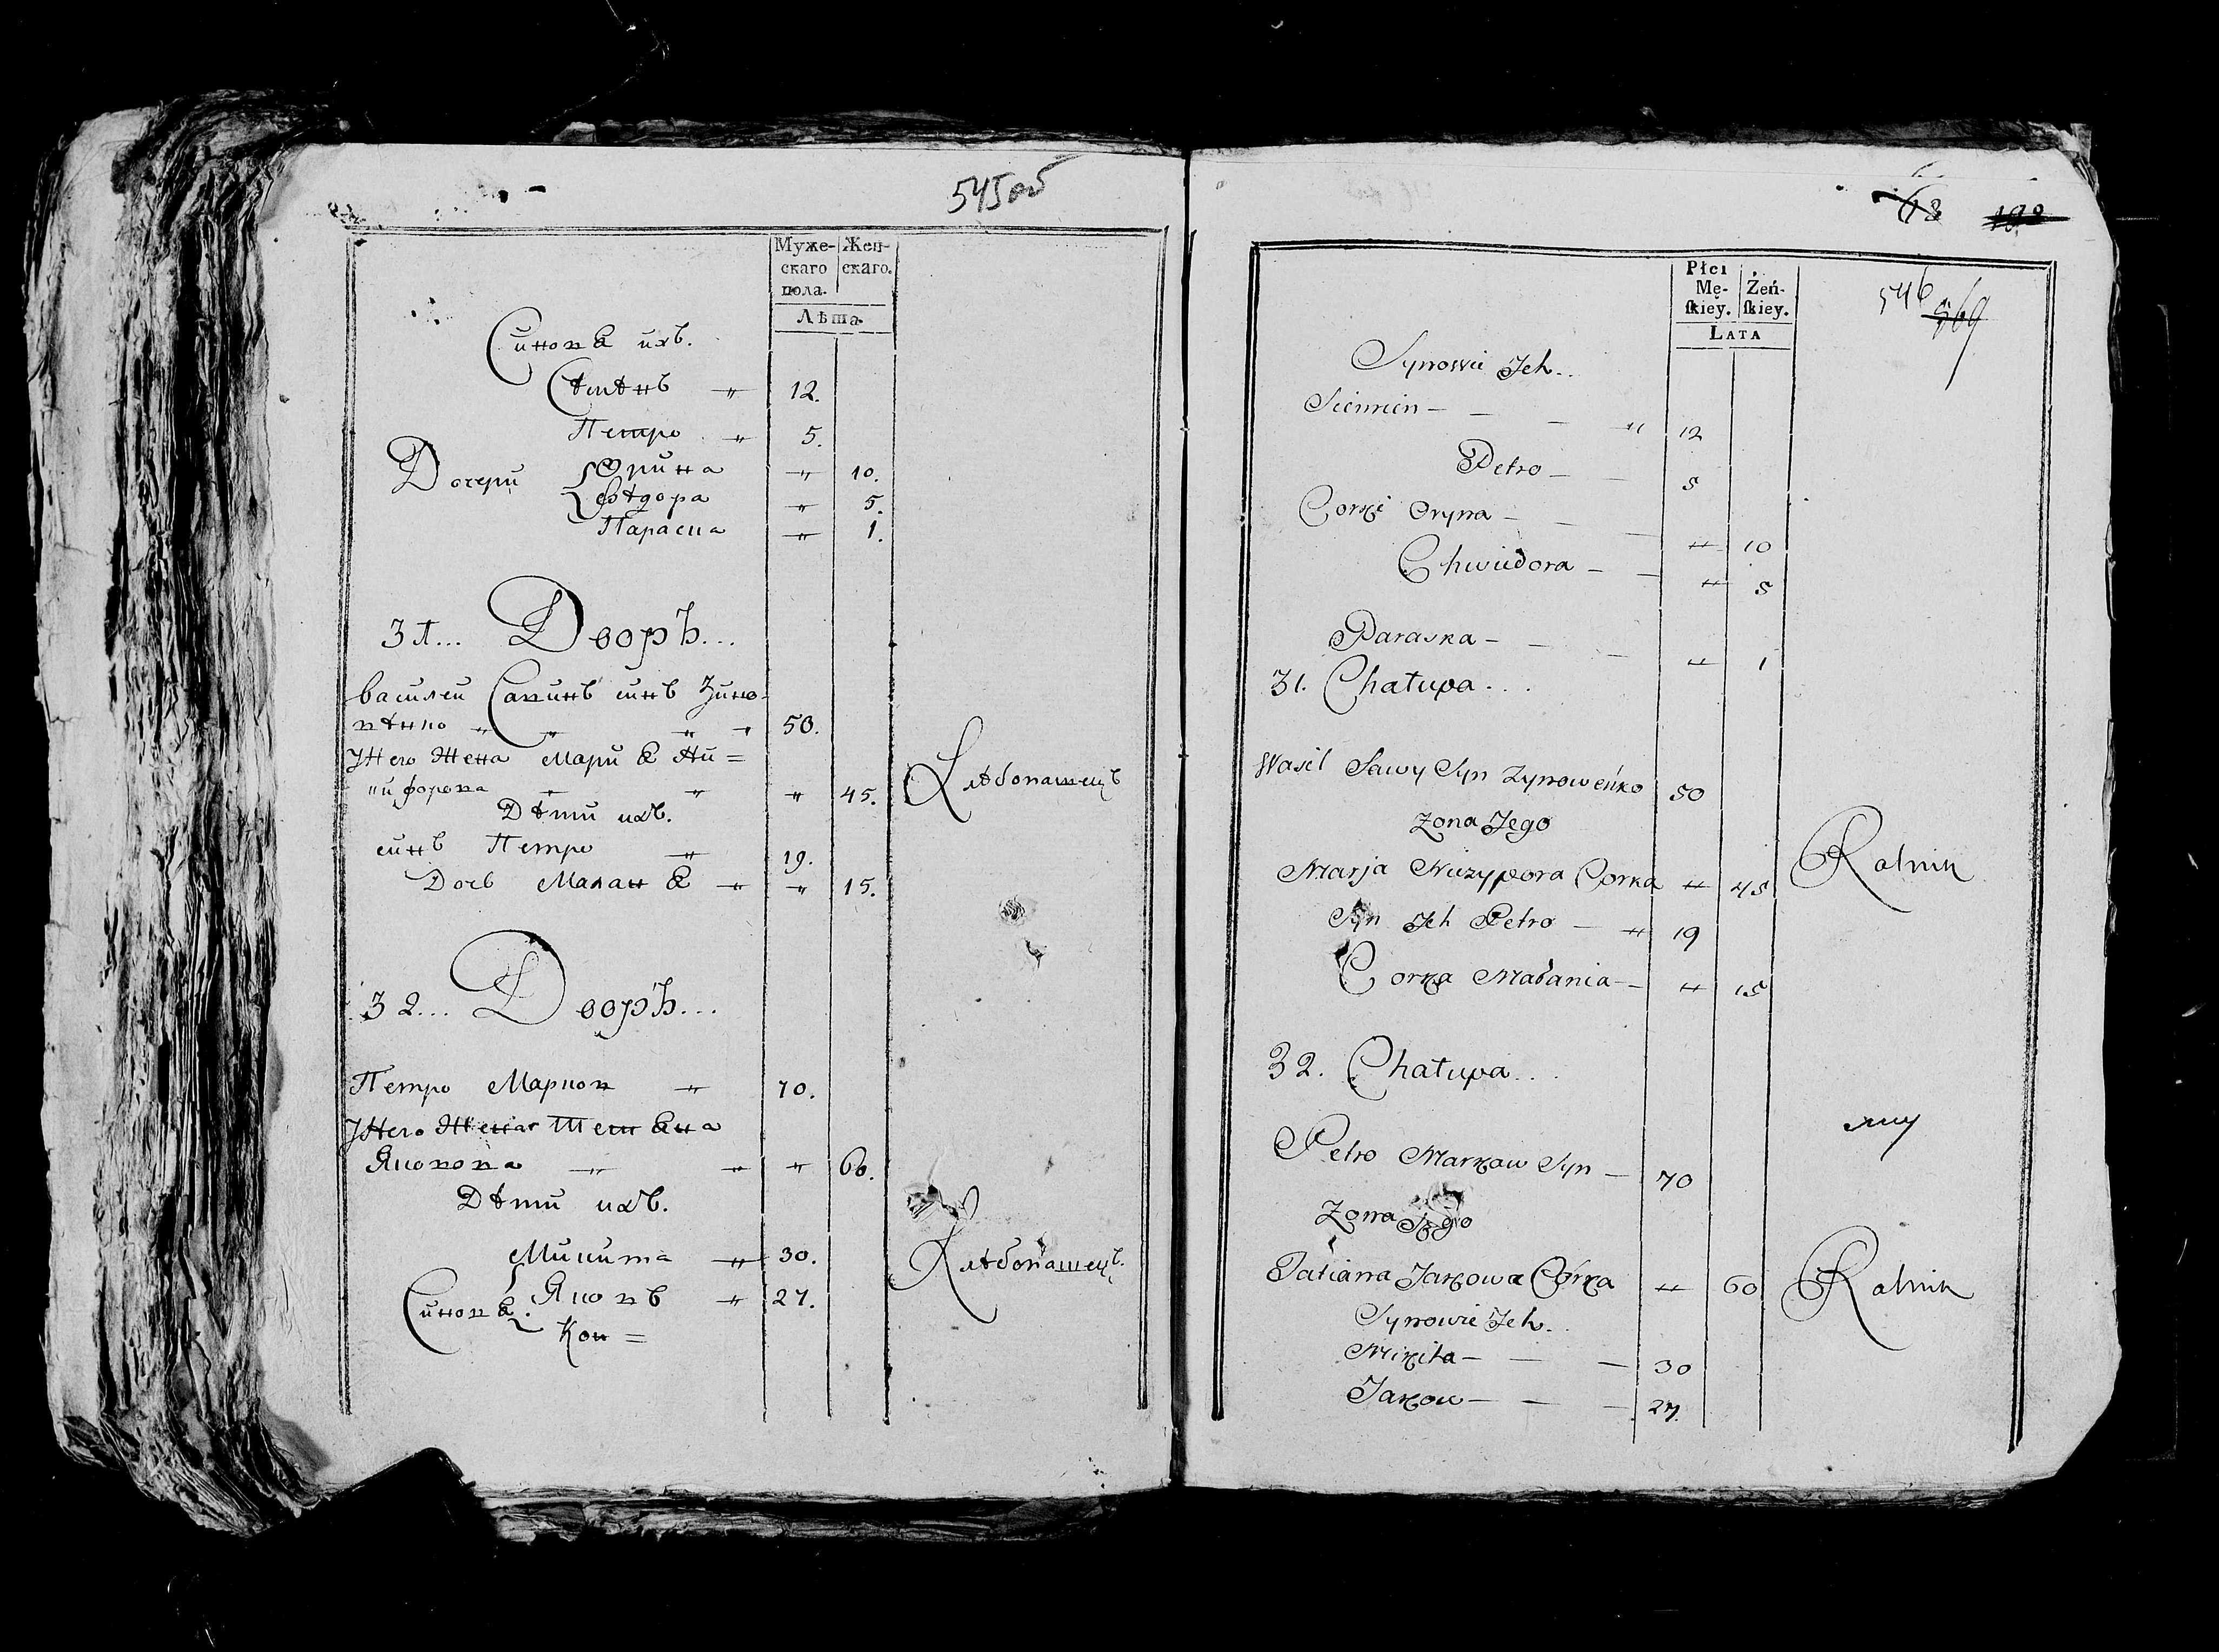 545об
Муже- Жен-
скаго скаго.
пола.
Лѣта
Синовѣ ихъ.
Семенъ 〃 12.
Петро 〃 5.
Дочери Орина 〃 10.
Федора 〃 5.
Параска 〃 1.
31... Дворъ...
василеи Савинъ синъ Зино-
венко 〃 〃 〃 〃 50.
Его Жена Мариѣ Ни=
кифорова 〃 〃 〃 45. Хлебопашецъ
Дети ихъ.
синъ Петро 〃 19.
Дочъ Маланѣ 〃 〃 15.
32... Дворъ...
Петро Марков 〃 70.
Его Жена Тетѣна
Яковова 〃 〃 〃 60.
Дети ихъ.
Микита 〃 30. Хлебопашецъ.
Синовѣ. Яковъ 〃 27.
Кон=
68 198
546 569
Płci
Mę- Żeń-
ſkiey. ſkiey.
LATA
Synowie Jch..
Siemien — — — 〃 12
Petro — — 5
Corki Oryna — — — 〃 10
Chwiedora — — 〃 5
Paraska — — — 〃 1
31. Chałupa...
Wasil Sawy Syn Zynoweńko 50
Zona Jego
Marja Niczypora Corka 〃 45 Rolnik
Syn Jch Petro — 〃 19
Corka Małania — 〃 15
32. Chałupa...
Petro Markow Syn — 70
Zona Jego
Tatiana Jakowa Córka 〃 60 Rolnik
Synowie Jch..
Mikita — — — 30
Jakow — — — 27.